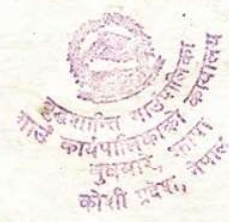 बुद्धशान्ति गाउँपालिका
गाउँ कार्यपालिकाको कार्यालय
बुधबारे, झापा
कोशी प्रदेश, नेपाल